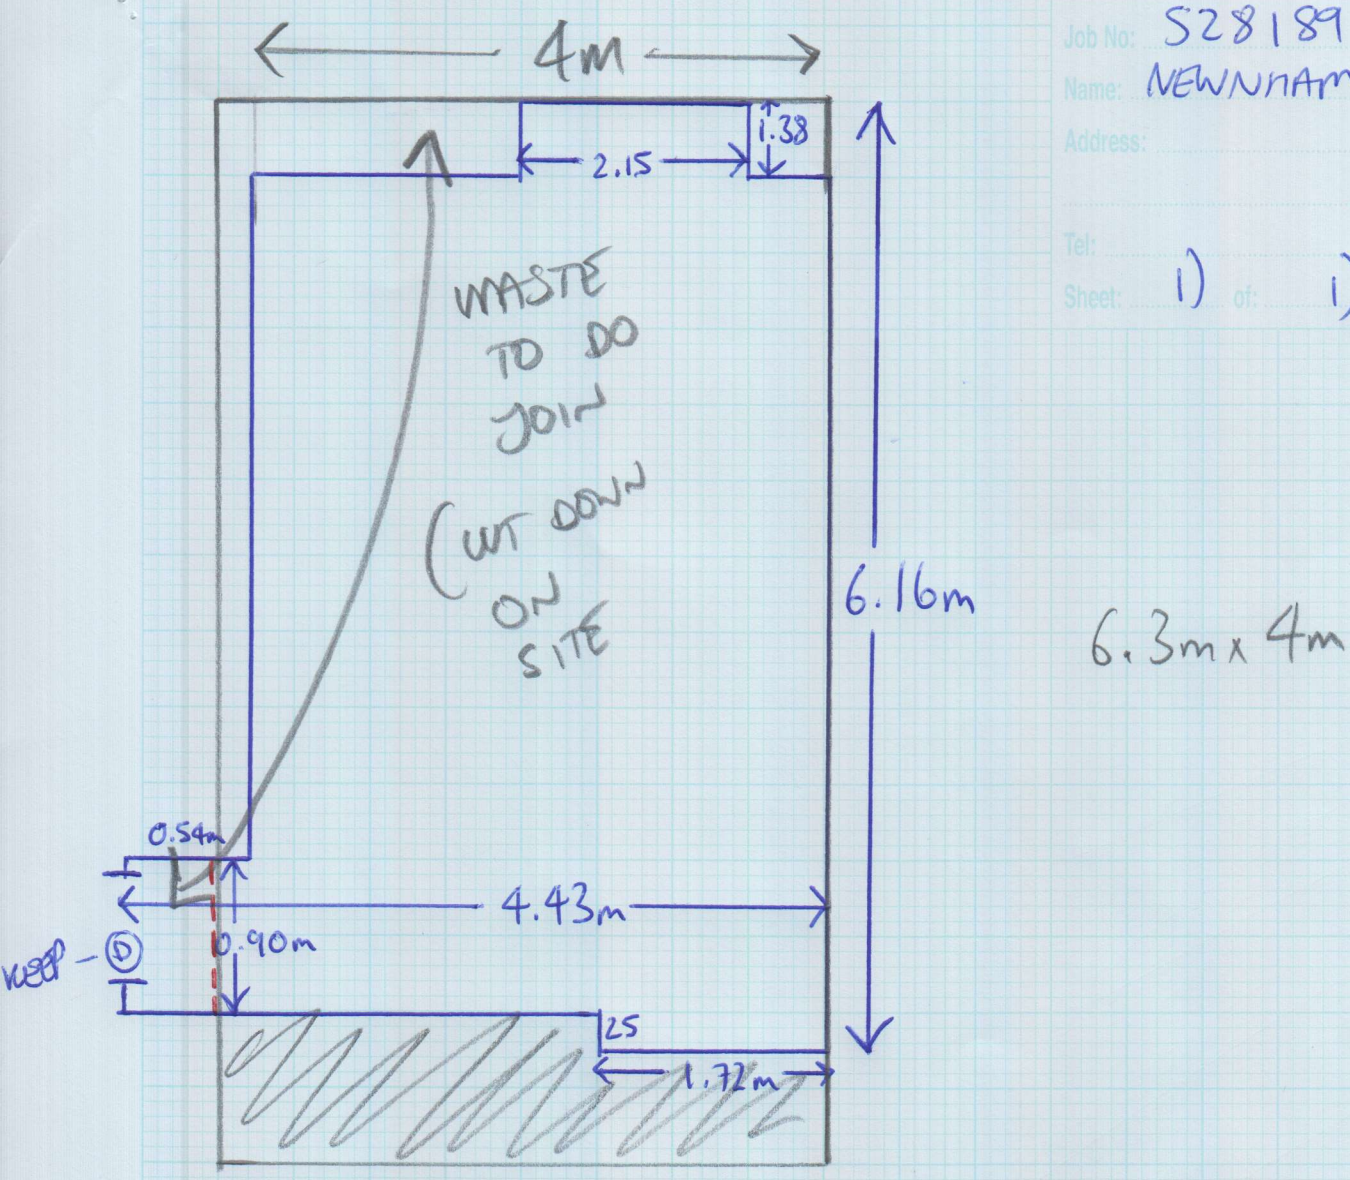 4m
Job No: S28189
Name: NEWNHAM
Address:
Tel:
Sheet: 1) of: 1)
1.38
2.15
WASTE
TO DO
JOIN
(CUT DOWN
ON
SITE
6.16m
6.3m x 4m
0.54m
4.43m
KEEP - D
0.90m
25
1.72m